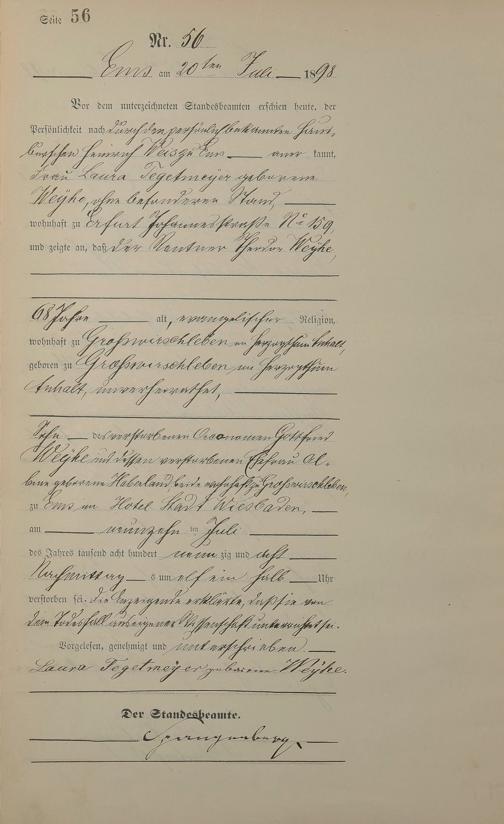 Seite 56
Nr. 56
Ems am 20ten Juli 1898
Vor dem unterzeichneten Standesbeamten erschien heute, der
Persönlichkeit nach durch den persönlich bekannten Haus,
burschen Heinrich Weis zu Ems aner kannt,
Frau Laura Tegetmeyer geborene
Weyhe, ohne besonderen Stand,
wohnhaft zu Erfurt Johannesstraße No 159,
und zeigte an, daß der Rentner Theodor Weyhe,
68 Jahre alt, evangelischer Religion,
wohnhaft zu Großwirschleben im Herzogthum Anhalt,
geboren zu Großwirschleben im Herzogthum
Anhalt, unverheirathet,
Sohn des verstorbenen Oeconomen Gottfried
Weyhe und dessen verstorbenen Ehefrau Al-
bine geborene Haberland, beide wohnhaft zu Großwirschleben,
zu Ems im Hotel Stadt Wiesbaden,
am neunzehn ten Juli
des Jahres tausend acht hundert neun zig und acht
Nachmittag s um elf ein halb Uhr
verstorben sei. Die Anzeigende erklärte, daß sie von
dem Todesfall aus eigener Wissenschaft unterrichtet sei.
Vorgelesen, genehmigt und unterschrieben
Laura Tegetmeyer geborene Weyhe.
Der Standesbeamte.
Spangenberg